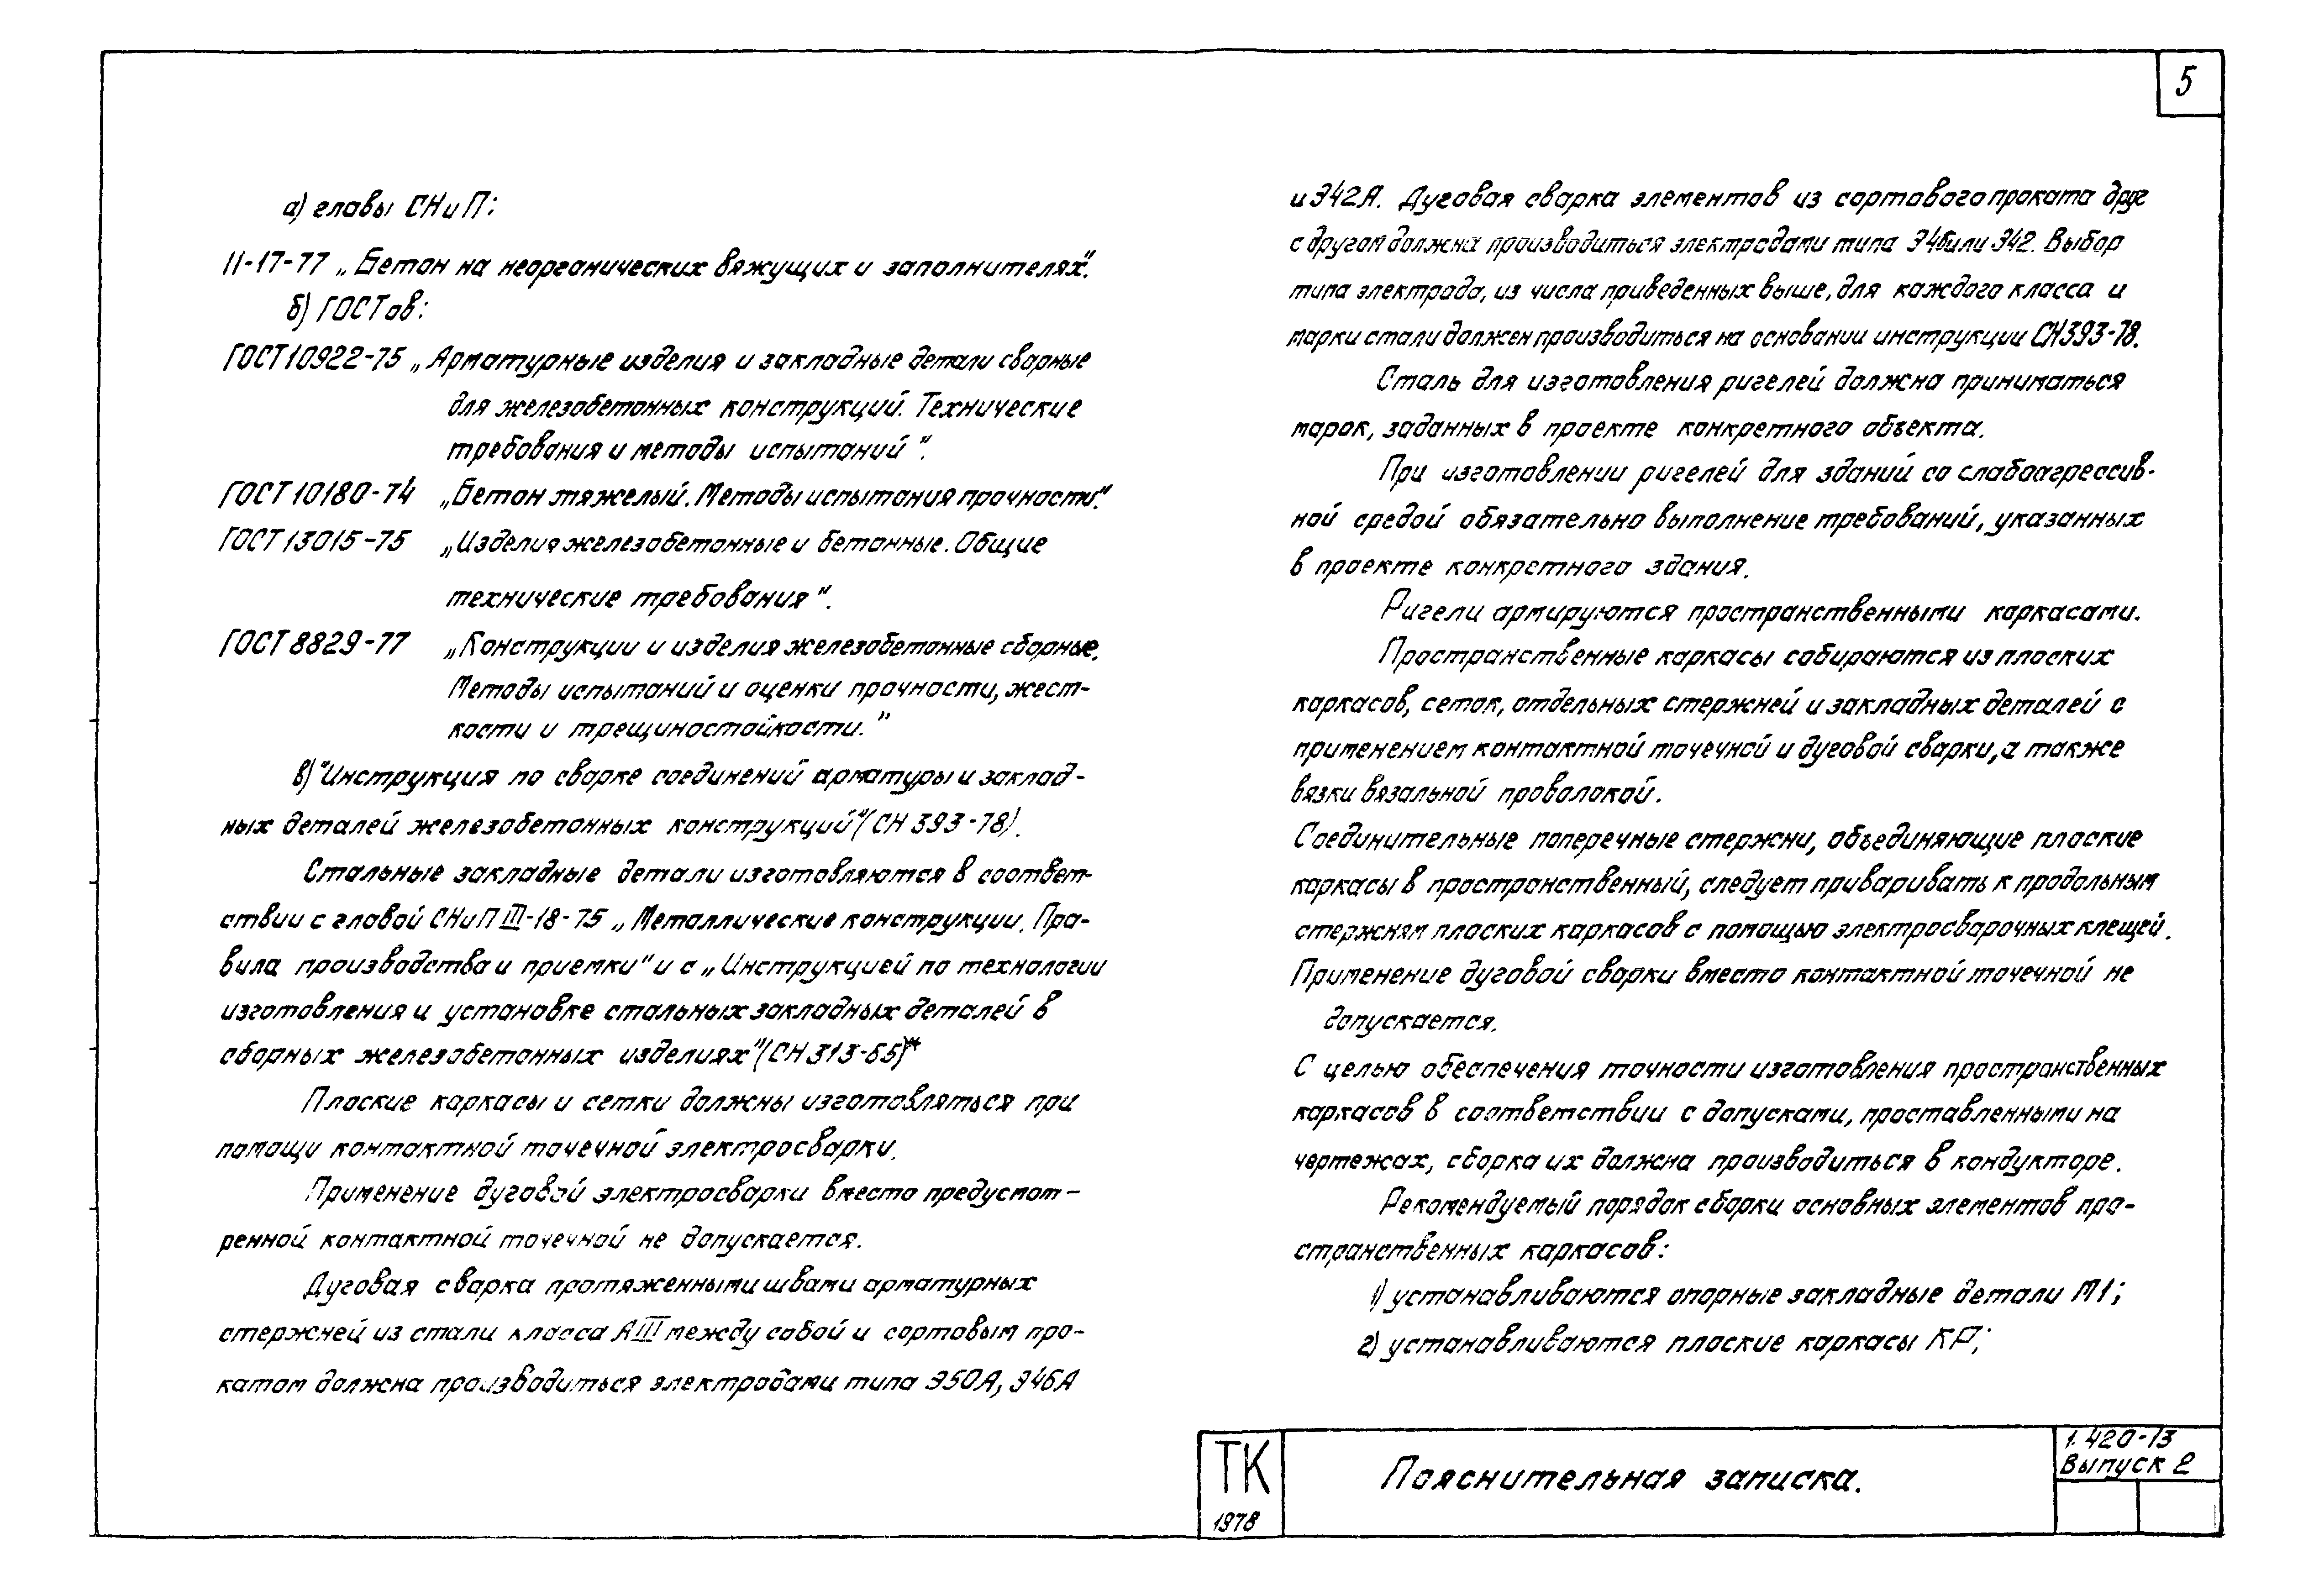 5
а) главы СНиП:
II-17-77 „Бетон на неорганических вяжущих и заполнителях".
б) ГОСТов:
ГОСТ 10922-75 „Арматурные изделия и закладные детали сварные
для железобетонных конструкций. Технические
требования и методы испытаний".
ГОСТ 10180-74 „Бетон тяжелый. Методы испытания прочности."
ГОСТ 13015-75 „Изделия железобетонные и бетонные. Общие
технические требования".
ГОСТ 8829-77 „Конструкции и изделия железобетонные сборные.
Методы испытаний и оценки прочности, жест-
кости и трещиностойкости."
в) "Инструкция по сварке соединений арматуры и заклад-
ных деталей железобетонных конструкций" (СН 393-78).
Стальные закладные детали изготовляются в соответ-
ствии с главой СНиП III-18-75 „Металлические конструкции. Пра-
вила производства и приемки" и с „Инструкцией по технологии
изготовления и установке стальных закладных деталей в
сборных железобетонных изделиях" (СН 313-65)*
Плоские каркасы и сетки должны изготовляться при
помощи контактной точечной электросварки.
Применение дуговой электросварки вместо предусмот-
ренной контактной точечной не допускается.
Дуговая сварка протяженными швами арматурных
стержней из стали класса АIII между собой и сортовым про-
катом должна производиться электродами типа Э50А, Э46А
и Э42А. Дуговая сварка элементов из сортового проката друг
с другом должна производиться электродами типа Э46 или Э42. Выбор
типа электрода, из числа приведенных выше, для каждого класса и
марки стали должен производиться на основании инструкции СН393-78.
Сталь для изготовления ригелей должна приниматься
марок, заданных в проекте конкретного объекта.
При изготовлении ригелей для зданий со слабоагрессив-
ной средой обязательно выполнение требований, указанных
в проекте конкретного здания.
Ригели армируются пространственными каркасами.
Пространственные каркасы собираются из плоских
каркасов, сеток, отдельных стержней и закладных деталей с
применением контактной точечной и дуговой сварки, а также
вязки вязальной проволокой.
Соединительные поперечные стержни, объединяющие плоские
каркасы в пространственный, следует приваривать к продольным
стержням плоских каркасов с помощью электросварочных клещей.
Применение дуговой сварки вместо контактной точечной не
допускается.
С целью обеспечения точности изготовления пространственных
каркасов в соответствии с допусками, проставленными на
чертежах, сборка их должна производиться в кондукторе.
Рекомендуемый порядок сборки основных элементов про-
странственных каркасов:
1) устанавливаются опорные закладные детали М1;
2) устанавливаются плоские каркасы КР;
ТК
1978
Пояснительная записка.
1.420-13
Выпуск 2